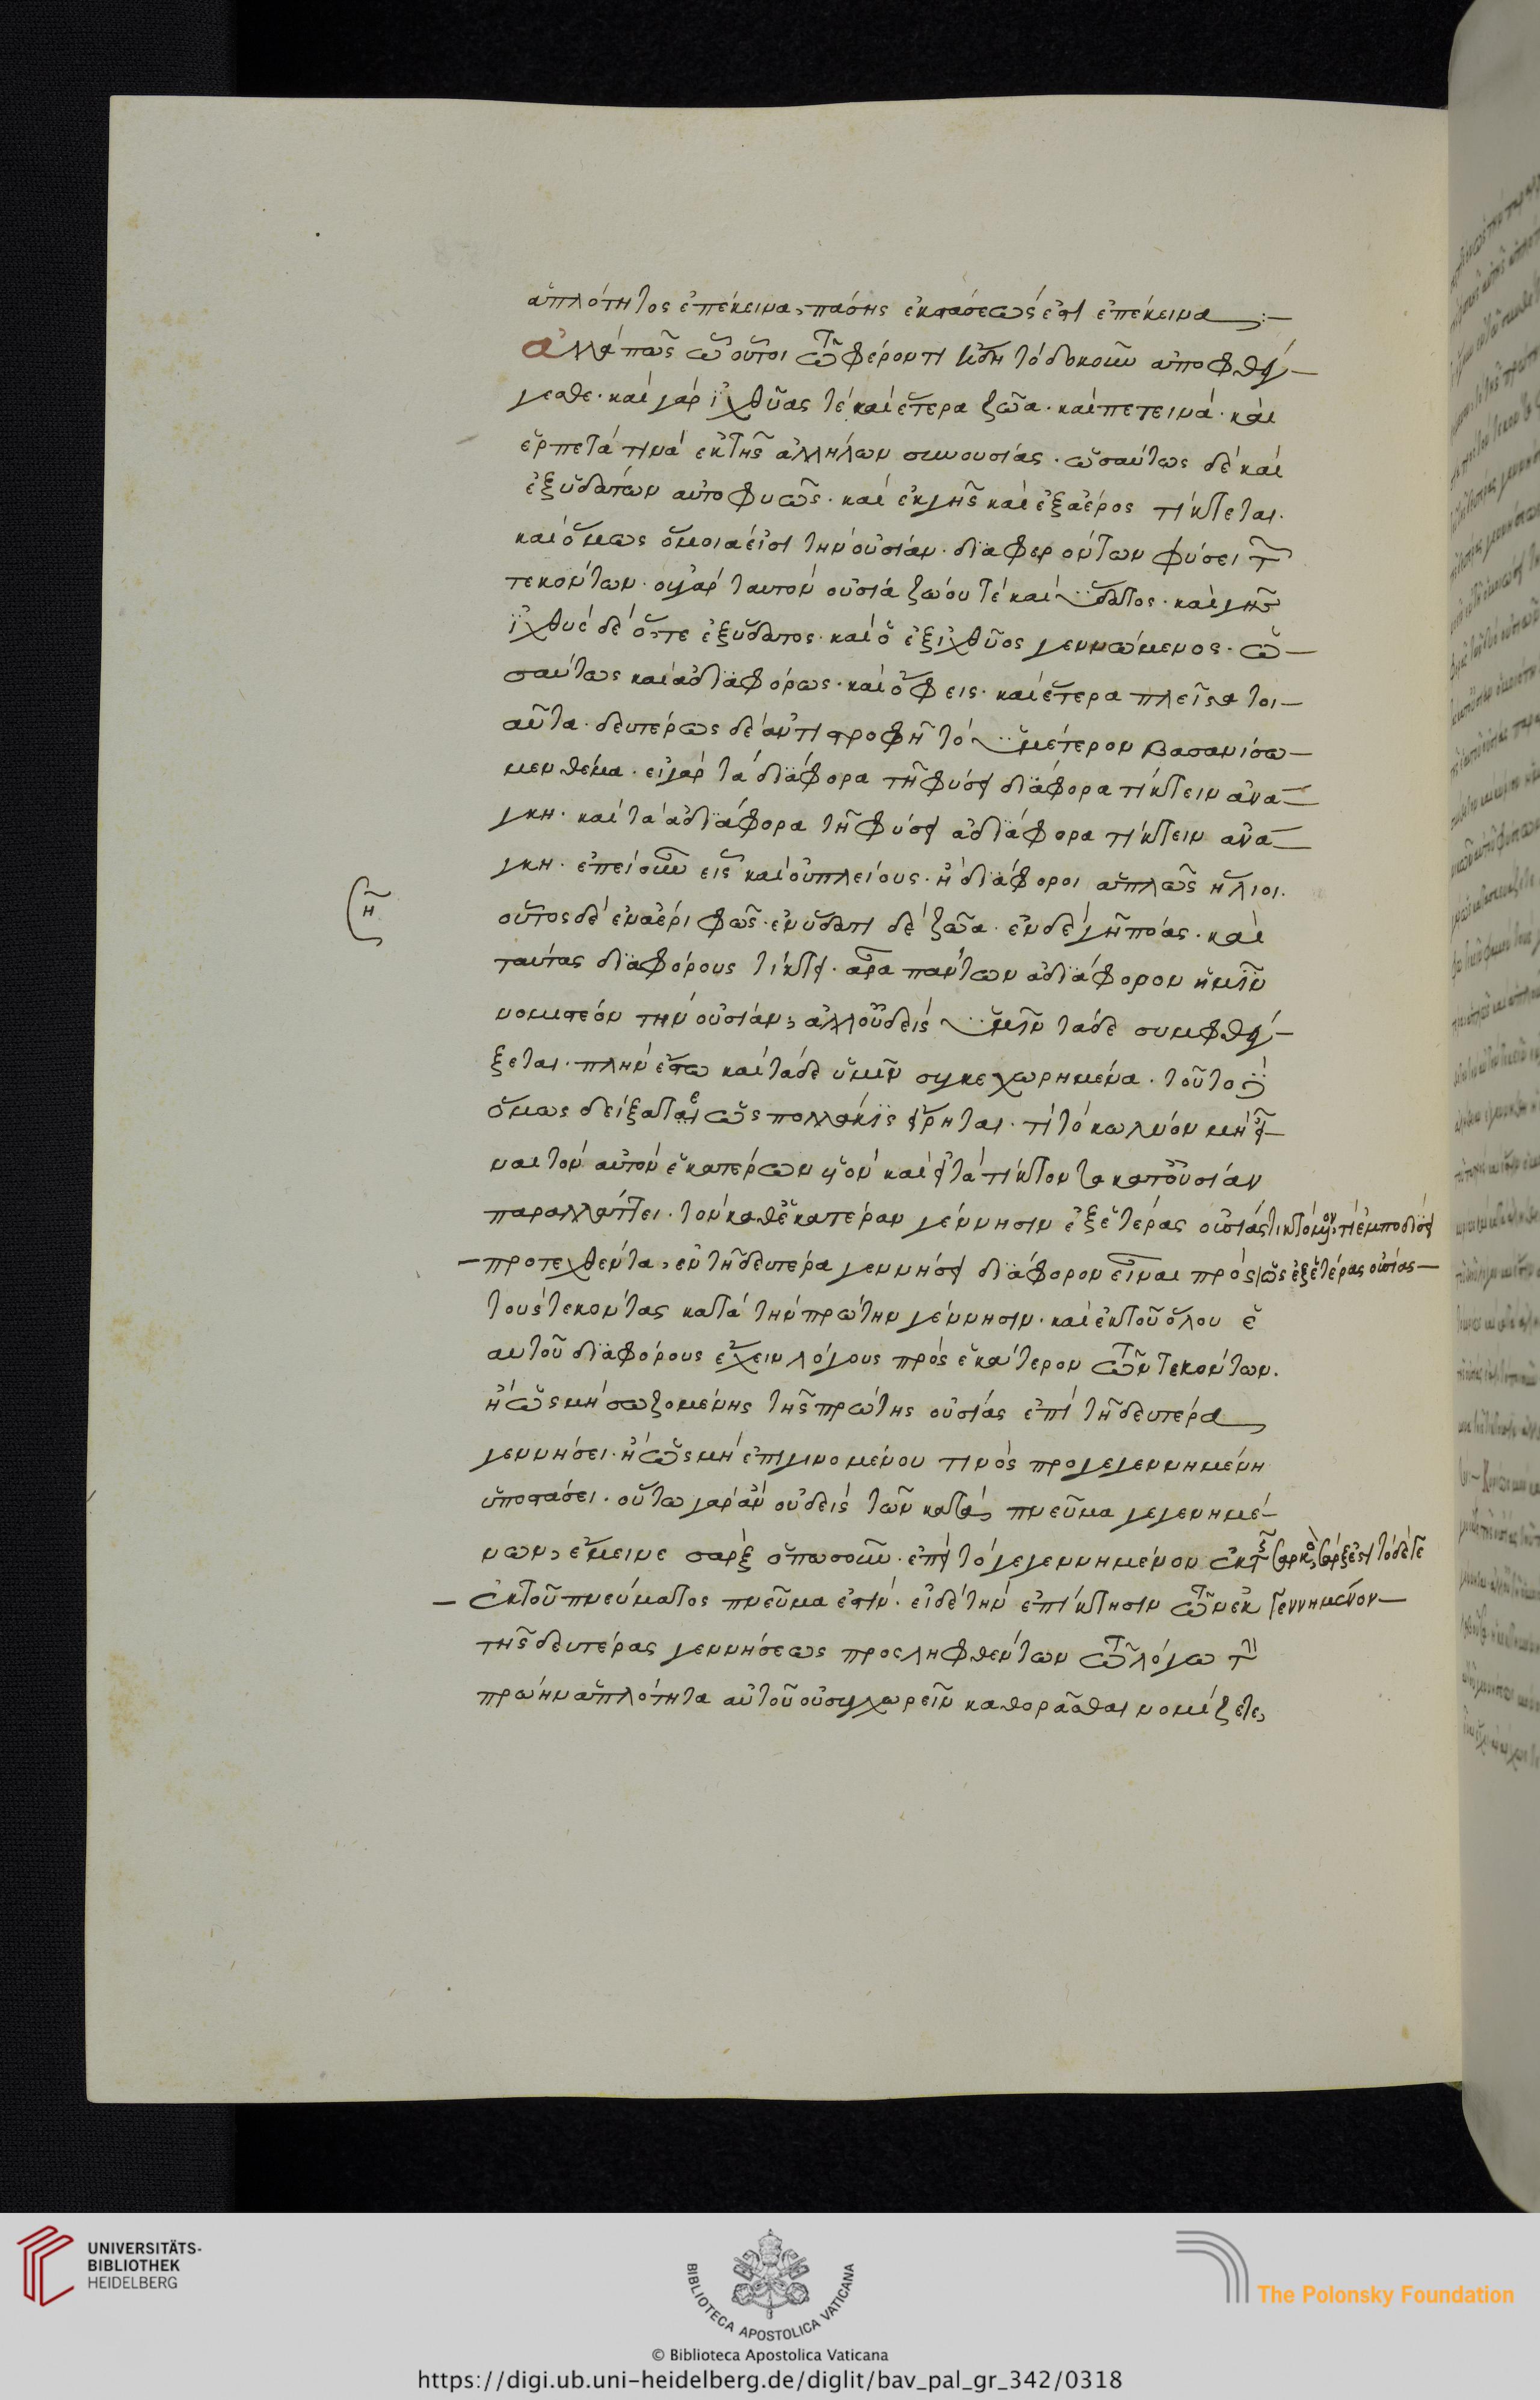 ἁπλότητος ἐπέκεινα, πάσης ἐκστάσεώς ἐστι ἐπέκεινα :—
Ἀλλά πῶς ὦ οὗτοι τῶ φέροντι ἤδη τὸ δοκοῦν ἀποφθέγ-
γεσθε· καὶ γὰρ ἰχθύας τὲ καὶ ἕτερα ζῶα· καὶ πετεινά· καὶ
ἑρπετά τινὰ ἐκ τῆς ἀλλήλων συνουσίας· ὡσαύτως δὲ καὶ
ἐξ ὑδάτων αὐτοφυῶς· καὶ ἐκ γῆς καὶ ἐξ ἀέρος τίκτεται·
καὶ ὅμως ὅμοια εἰσι τὴν οὐσίαν· διαφερόντων φύσει τῶν
τεκόντων· οὐ γὰρ ταυτὸν οὐσία ζώου τὲ καὶ ὕδατος· καὶ γῆς
ἰχθύς δὲ ὅ, τε ἐξ ὕδατος· καὶ ὁ ἐξ ἰχθύος γεννώμενος· ὡ-
σαύτως καὶ ἀδιαφόρως· καὶ ὄφεις· καὶ ἕτερα πλεῖστα τοι-
αῦτα· δευτέρως δὲ ἀντιστροφῆ τὸ ὑμέτερον βασανίσω-
μεν θέμα· εἰ γὰρ τὰ διάφορα τῆ φύσει διάφορα τίκτειν ἀνά-
γκη· καὶ τὰ ἀδιάφορα τῆ φύσει ἀδιάφορα τίκτειν ἀνά-
γκη· ἐπεὶ οὖν εἷς καὶ οὐ πλείους· ἢ διάφοροι ἁπλῶς ἥλιοι·
οὗτος δὲ ἐν ἀέρι φῶς· ἐν ὕδατι δὲ ζῶα· ἐν δὲ γῆ πόας· καὶ
ταύτας διαφόρους τίκτει· ἆρα πάντων ἀδιάφορον ἡμῖν
νομιστέον τὴν οὐσίαν; ἀλλ' οὐδεὶς ὑμῖν τάδε συμφθέγ-
ξεται· πλὴν ἔστω καὶ τάδε ὑμῖν συγκεχωρημένα· τοῦτο
ὅμως δείξατε ὡς πολλάκις εἴρηται· τί τὸ κωλύον μὴ εἶ-
ναι τὸν αὐτὸν ἑκατέρων υἱὸν καὶ εἰ τὰ τίκτοντα κατ' οὐσίαν
παραλλάττει· τὸν καθ' ἑκατέραν γέννησιν ἐξ ἑτέρας οὐσίας τικτόμενον; τί ἐμποδίσει
– προτεχθέντα, ἐν τῆ δευτέρα γεννήσει διάφορον εἶναι πρὸς ὡς ἐξ ἑτέρας οὐσίας —
τοὺς τεκόντας κατὰ τὴν πρώτην γέννησιν· καὶ ἐκ τοῦ ὅλου ἑ
αυτοῦ διαφόρους ἔχειν λόγους πρὸς ἑκάτερον τῶν τεκόντων·
ἢ ὡς μὴ σωζομένης τῆς πρώτης οὐσίας ἐπὶ τῆ δευτέρα
γεννήσει· ἢ ὡς μὴ ἐπιγινομένου τινὸς προγεγεννημένη
ὑποστάσει· οὕτω γὰρ ἂν οὐδεὶς τῶν κατὰ πνεῦμα γεγεννημέ-
νων, ἔμεινε σὰρξ ὁπωσοῦν· ἐπεὶ τὸ γεγεννημένον ἐκ τῆς σαρκὸς, σάρξ ἐστι τὸ δὲ γε
– ἐκ τοῦ πνεύματος πνεῦμα ἐστίν· εἰ δὲ τὴν ἐπίκτησιν τῶν ἐκ γεννημένον —
τῆς δευτέρας γεννήσεως προσληφθέντων τῶ λόγω τὴν
πρώην ἁπλότητα αὐτοῦ οὐ συγχωρεῖν καθορᾶσθαι νομίζετε,
η
UNIVERSITÄTS-
BIBLIOTHEK
HEIDELBERG
BIBLIOTECA APOSTOLICA VATICANA
The Polonsky Foundation
© Biblioteca Apostolica Vaticana
https://digi.ub.uni-heidelberg.de/diglit/bav_pal_gr_342/0318